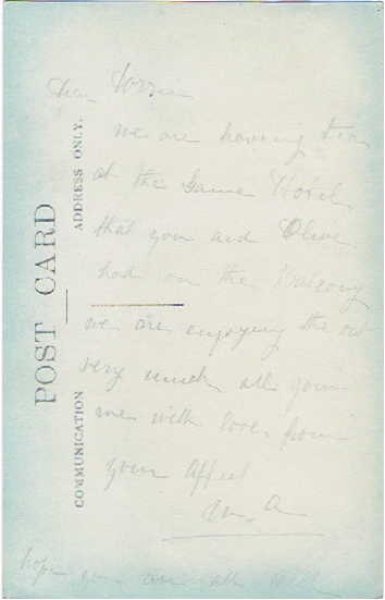 Dear Lizzie
we are having tea
at the same Hotel
that you and Olive
had on the Balcony
we are enjoying the
very much all join
me with love from
your Affect
M. A
hope you are all well
POST CARD
ADDRESS ONLY.
COMMUNICATION